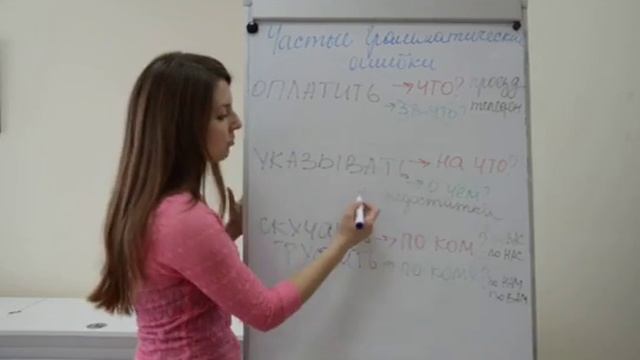 Частые Грамматические
ошибки
ОПЛАТИТЬ → ЧТО? проезд
→ ЗА ЧТО? телефон
УКАЗЫВАТЬ → НА ЧТО?
→ О ЧЕМ?
недостатки
СКУЧА → ПО КОМ?
по НАС
→ ПО КОМ? по НАМ
по ВАМ